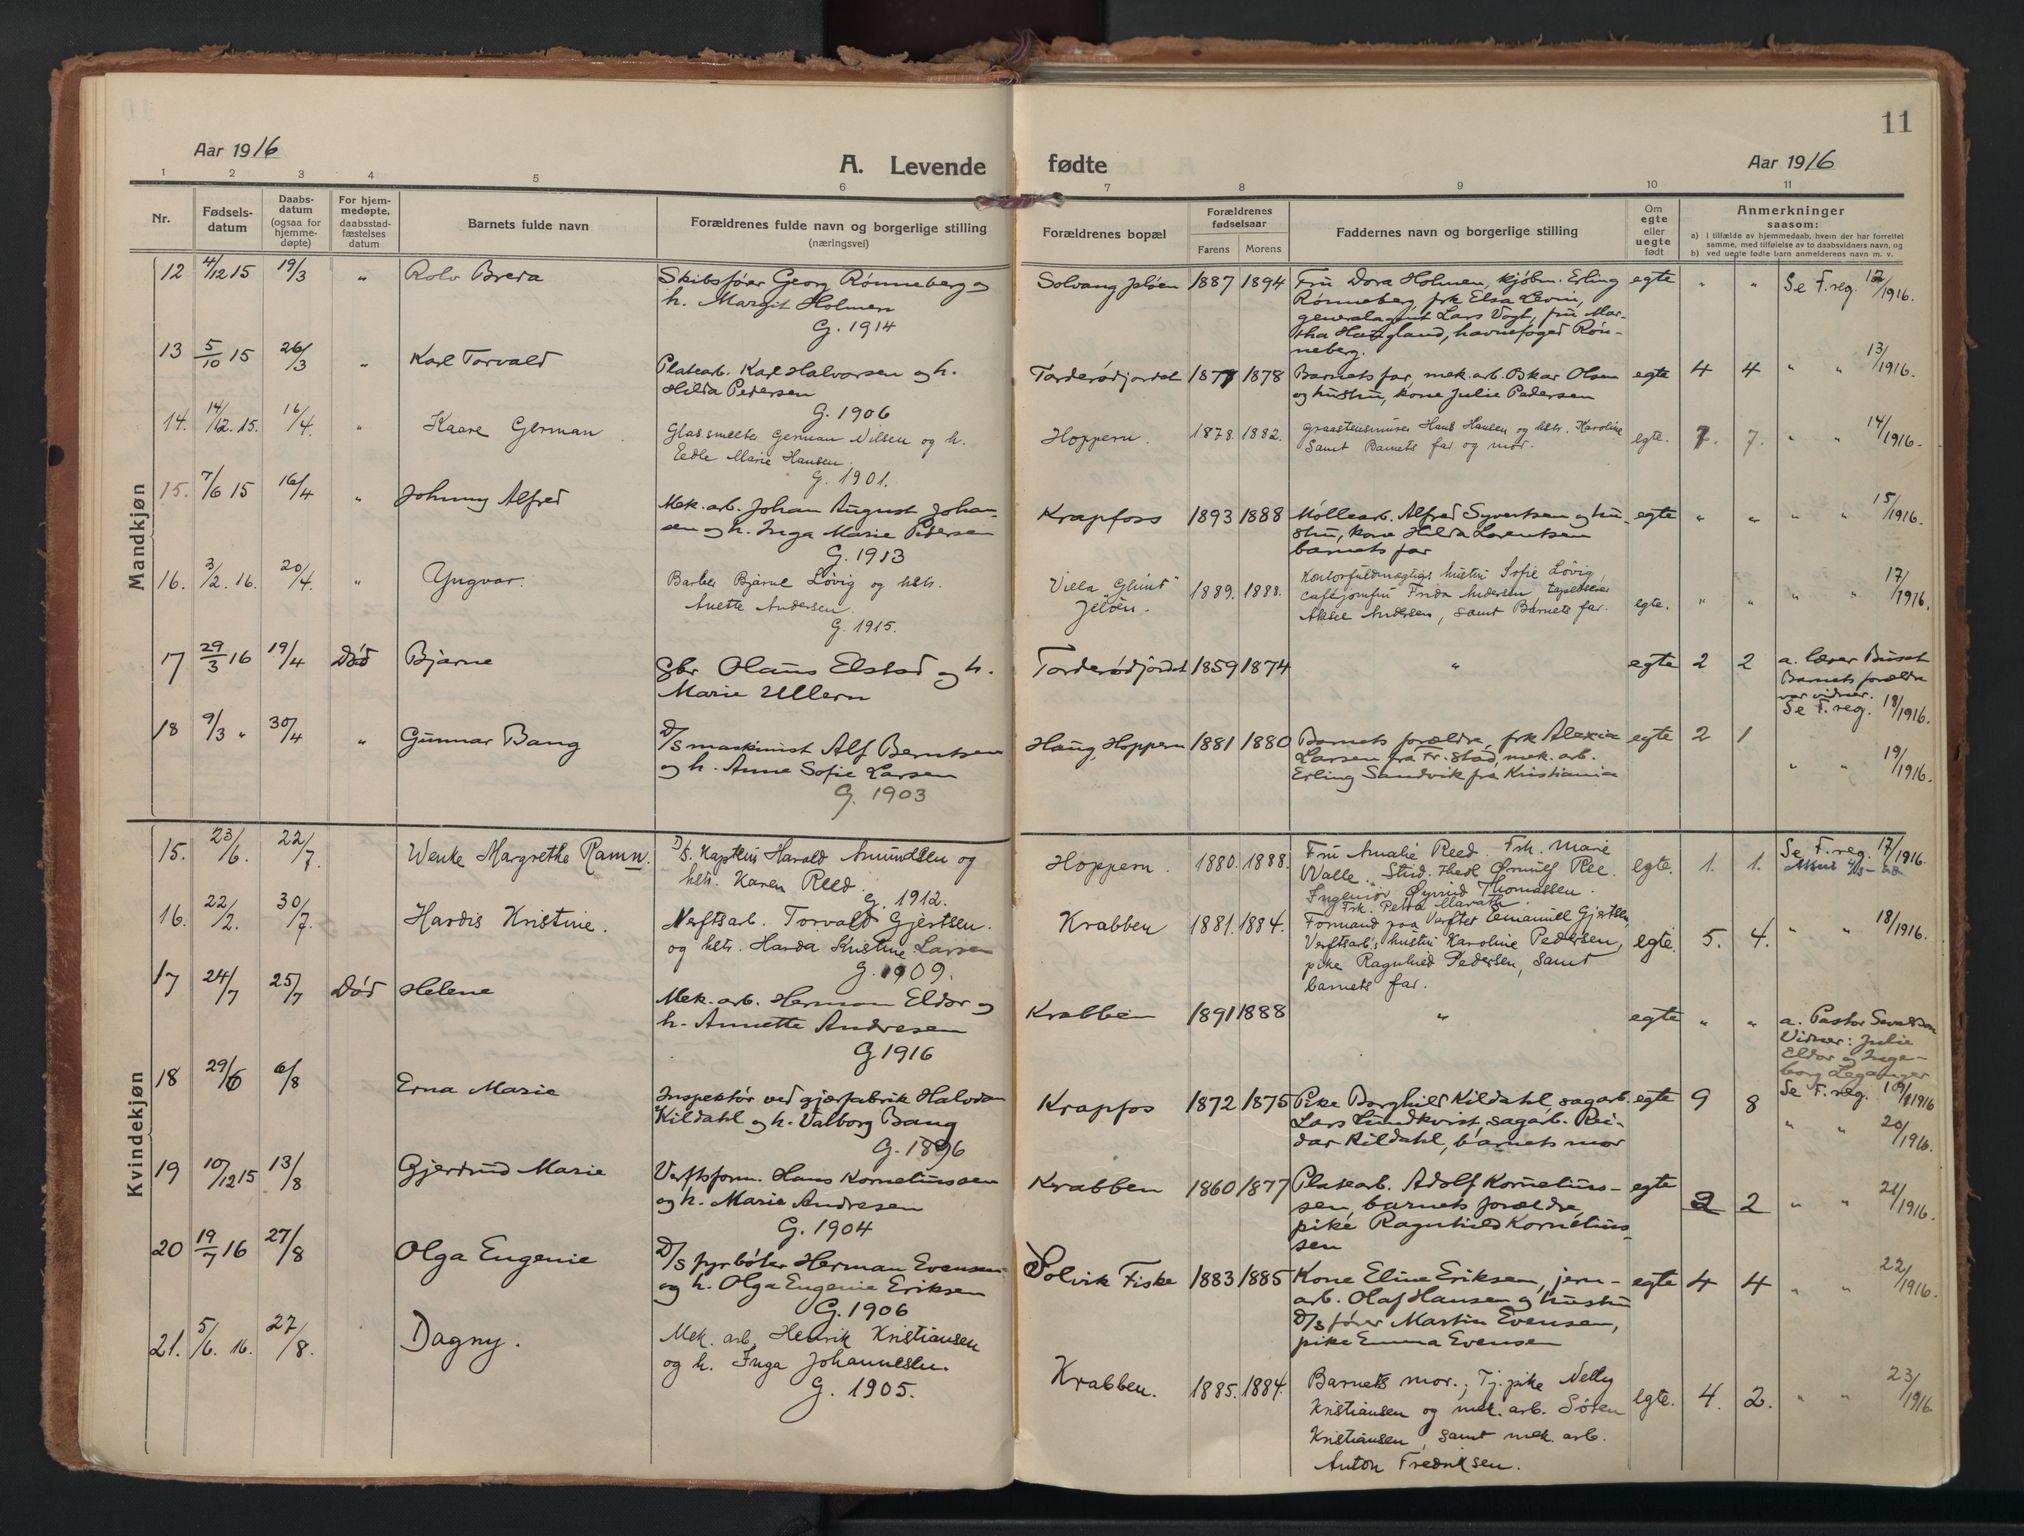 11
Aar 1916
A. Levende fødte
Aar 1916
1 2 3 4 5 6 7 8 9 10 11
Nr.
Fødsels-
datum
Daabs-
datum
(ogsaa for
hjemme-
døpte)
For hjem-
medøpte,
daabsstad-
fæstelses
datum
Barnets fulde navn
Forældrenes fulde navn og borgerlige stilling
(næringsvei)
Forældrenes bopæl
Forældrenes
fødselsaar
Farens Morens
Faddernes navn og borgerlige stilling
Om
egte
eller
uegte
født
Anmerkninger
saasom:
a) i tilfælde av hjemmedaab, hvem der har forrettet
samme, med tilføielse av to daabsvidners navn, og
b) ved uegte fødte barn anmelderens navn m. v.
Mandkjøn
12 4/12 15 19/3 " Rolv Breda
Skibsfører Georg Rønneberg og
h. Margit Holmen
G. 1914
Solvang Jeløen 1887 1894
Fru Dora Holmen, kjøbm. Erling
Rønneberg, frk Elsa Levin,
generalagent Lars Vogt, fru Mar-
tha Haugland, havnefoged Røn-
neberg.
egte " " Se F. reg. 12/1916.
13 5/10 15 26/3 " Karl Torvald
Platearb. Karl Halvorsen og h.
Hilda Pedersen
G. 1906
Torderødjordet 1877 1878
Barnets far, mek. arb. Oskar Olsen
og hustru, kone Julie Pedersen
egte 4 4 " " 13/1916.
14. 14/12. 15. 16/4. " Kaare German
Glassmester German Nilsen og h.
Eedle Marie Hansen.
G. 1901.
Hoppern. 1878. 1882.
graastensmurer Hans Hansen og hstr. Karoline
Samt Barnets far og mor.
egte. 7. 7. " " 14/1916.
15. 7/6 15 16/4 " Johnny Alfred
Mek. arb. Johan August Johan-
sen og h. Inga Marie Pedersen
G. 1913
Krapfoss 1893 1888
Møllearb. Alfred Syvertsen og hu-
stru, kone Hilda Lorentsen
barnets far
egte " " " " 15/1916.
16. 3/2. 16. 20/4. " Yngvar.
Barber Bjarne Løvig og hstr.
Anette Andersen.
G. 1915.
Villa "Glimt"
Jeløen. 1889. 1888.
Kontorfuldmægtigs hustru Sofie Løvig,
cafejomfru Frida Andersen, tapetserer
Aksel Andersen, samt Barnets far.
egte. " " " " 17/1916.
17 29/3 16 19/4 Død Bjarne
Gbr Olaus Elstad og h.
Marie Ullern
Torderødjordet 1859 1874 " egte 2 2
a. lærer Buset
Barnets forældre
var vidner.
Se F. reg. 18/1916.
18 9/3 " 30/4 " Gunnar Bang
D/S maskinist Alf Berntsen
og h. Anne Sofie Larsen
G. 1903
Haug, Hoppern 1881 1880
Barnets forældre, frk Alexia
Larsen fra Fr.stad, mek. arb.
Erling Sandvik fra Kristiania
egte 2 1 " " 19/1916.
Kvindekjøn
15. 23/6. 22/7. Wenke Margrethe Ramn.
D/S. Kaptein Harald Amundsen og
hstr. Karen Reed.
G. 1912.
Hoppern. 1880. 1888.
Fru Amalie Reed. Frk. Marie
Walle. Stud.
Ingeniør Øyvind Thomassen.
Frk. Petra
egte. 1. 1. Se F. reg. 17/1916.
16. 22/2. 30/7. Hardis Kristine.
Verftsarb. Torvald Gjertsen.
og hstr. Harda Kristine Larsen
G. 1909.
Krabben 1881. 1884.
Formand paa Verftet Emanuel Gjertsen,
Verftsarb's hustru Karoline Pedersen,
pike Ragnhild Pedersen, samt
barnets far.
egte. 5. 4. " " 18/1916.
17 24/7 25/7 Død Helene
Mek. arb. Herman Eldor og
h. Annette Andresen
G 1916
Krabben 1891 1888 " egte " "
a. Pastor
Vidner: Julie
Eldor og Inge-
borg Leganger
18 29/6 6/8 Erna Marie
Inspektør ved gjærfabrik Halvdan
Kildahl og h. Valborg Bang
G. 1896
Krapfos 1872 1875
Pike Borghild Kildahl, sagarb.
Lars Lundkvist, sagarb. Rei-
dar Kildahl, barnets mor
egte 9 8 Se F. reg. 19/1916
" " 20/1916.
19 10/12 15 13/8 Gjertrud Marie
Verftsform. Hans Korneliussen
og h. Marie Andresen
G. 1904
Krabben 1860 1877
Platearb. Adolf Kornelius-
sen, barnets forældre,
pike Ragnhild Kornelius-
sen
egte 2 2 " " 21/1916.
20 19/7 16 27/8 Olga Eugenie
D/S fyrbøter Herman Evensen
og h. Olga Eugenie Eriksen
G. 1906
Solvik Fiske 1883 1885
Kone Eline Eriksen, jern-
arb. Olaf Hansen og hustru
D/S fører Martin Evensen,
pike Emma Evensen
egte 4 4 " " 22/1916.
21. 5/6. 16. 27/8. Dagny.
Mek. arb. Henrik Kristiansen
og h. Inga Johannesen.
G. 1905.
Krabben. 1885. 1884.
Barnets mor.; Tj. pike Nelly
Kristiansen og mek. arb. Søren
Kristiansen, samt mek. arb.
Anton Fredriksen.
egte. 4. 2. " " 23/1916